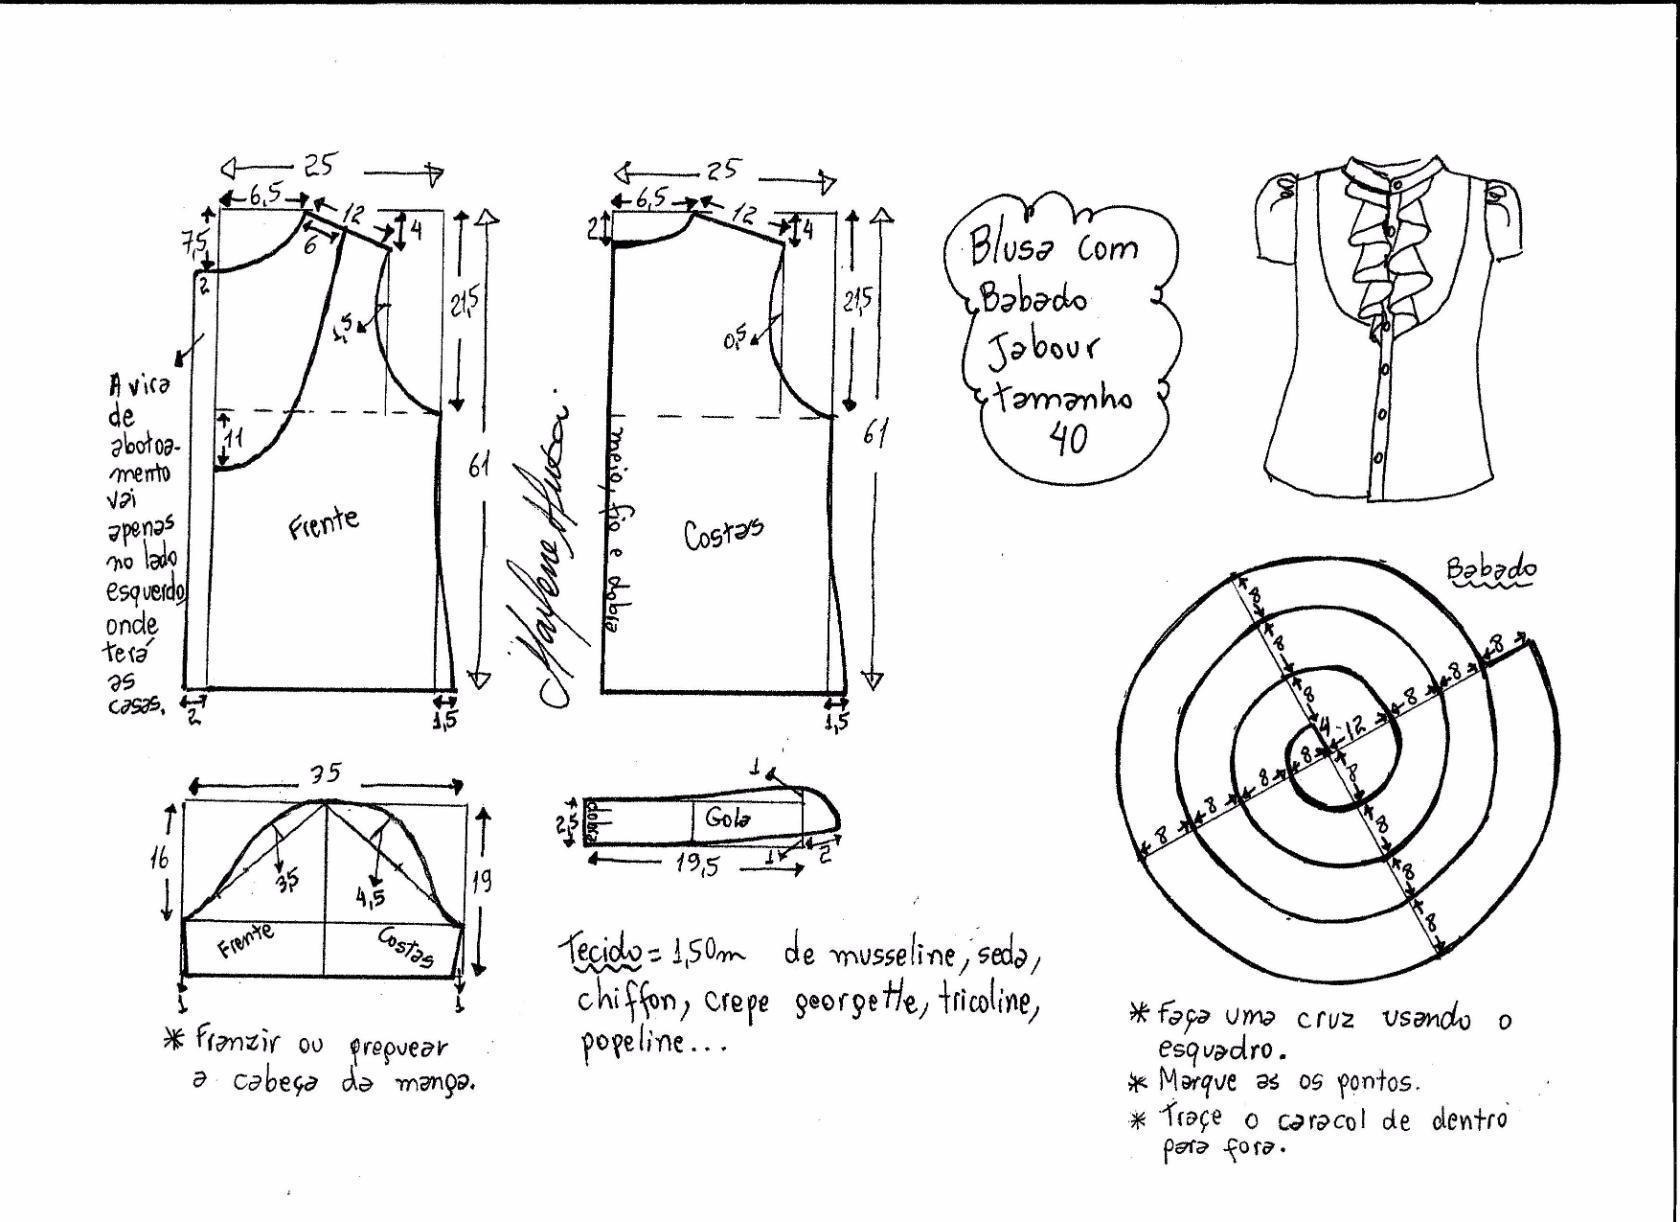 25
6,5
12
4
7,5
6
2
1,5
21,5
61
11
A vira
de
abotoa-
mento
vai
apenas
no lado
esquerdo
onde
terá
as
casas.
Frente
2
1,5
25
6,5
12
4
2
0,5
21,5
61
meio, fio e dobra
Costas
1,5
Blusa com
Babado
Jabour
tamanho
40
Babado
8
8
8
4
12
8
8
8
8
8
8
8
8
8
8
8
35
16
3,5
4,5
19
Frente
Costas
1
1
* Franzir ou preguear
a cabeça da manga.
1
2,5
dobra
Gola
19,5
1
2
Tecido = 1,50m de musseline, seda,
chiffon, crepe georgette, tricoline,
popeline...
* Faça uma cruz usando o
esquadro.
* Marque as os pontos.
* Traçe o caracol de dentro
para fora.